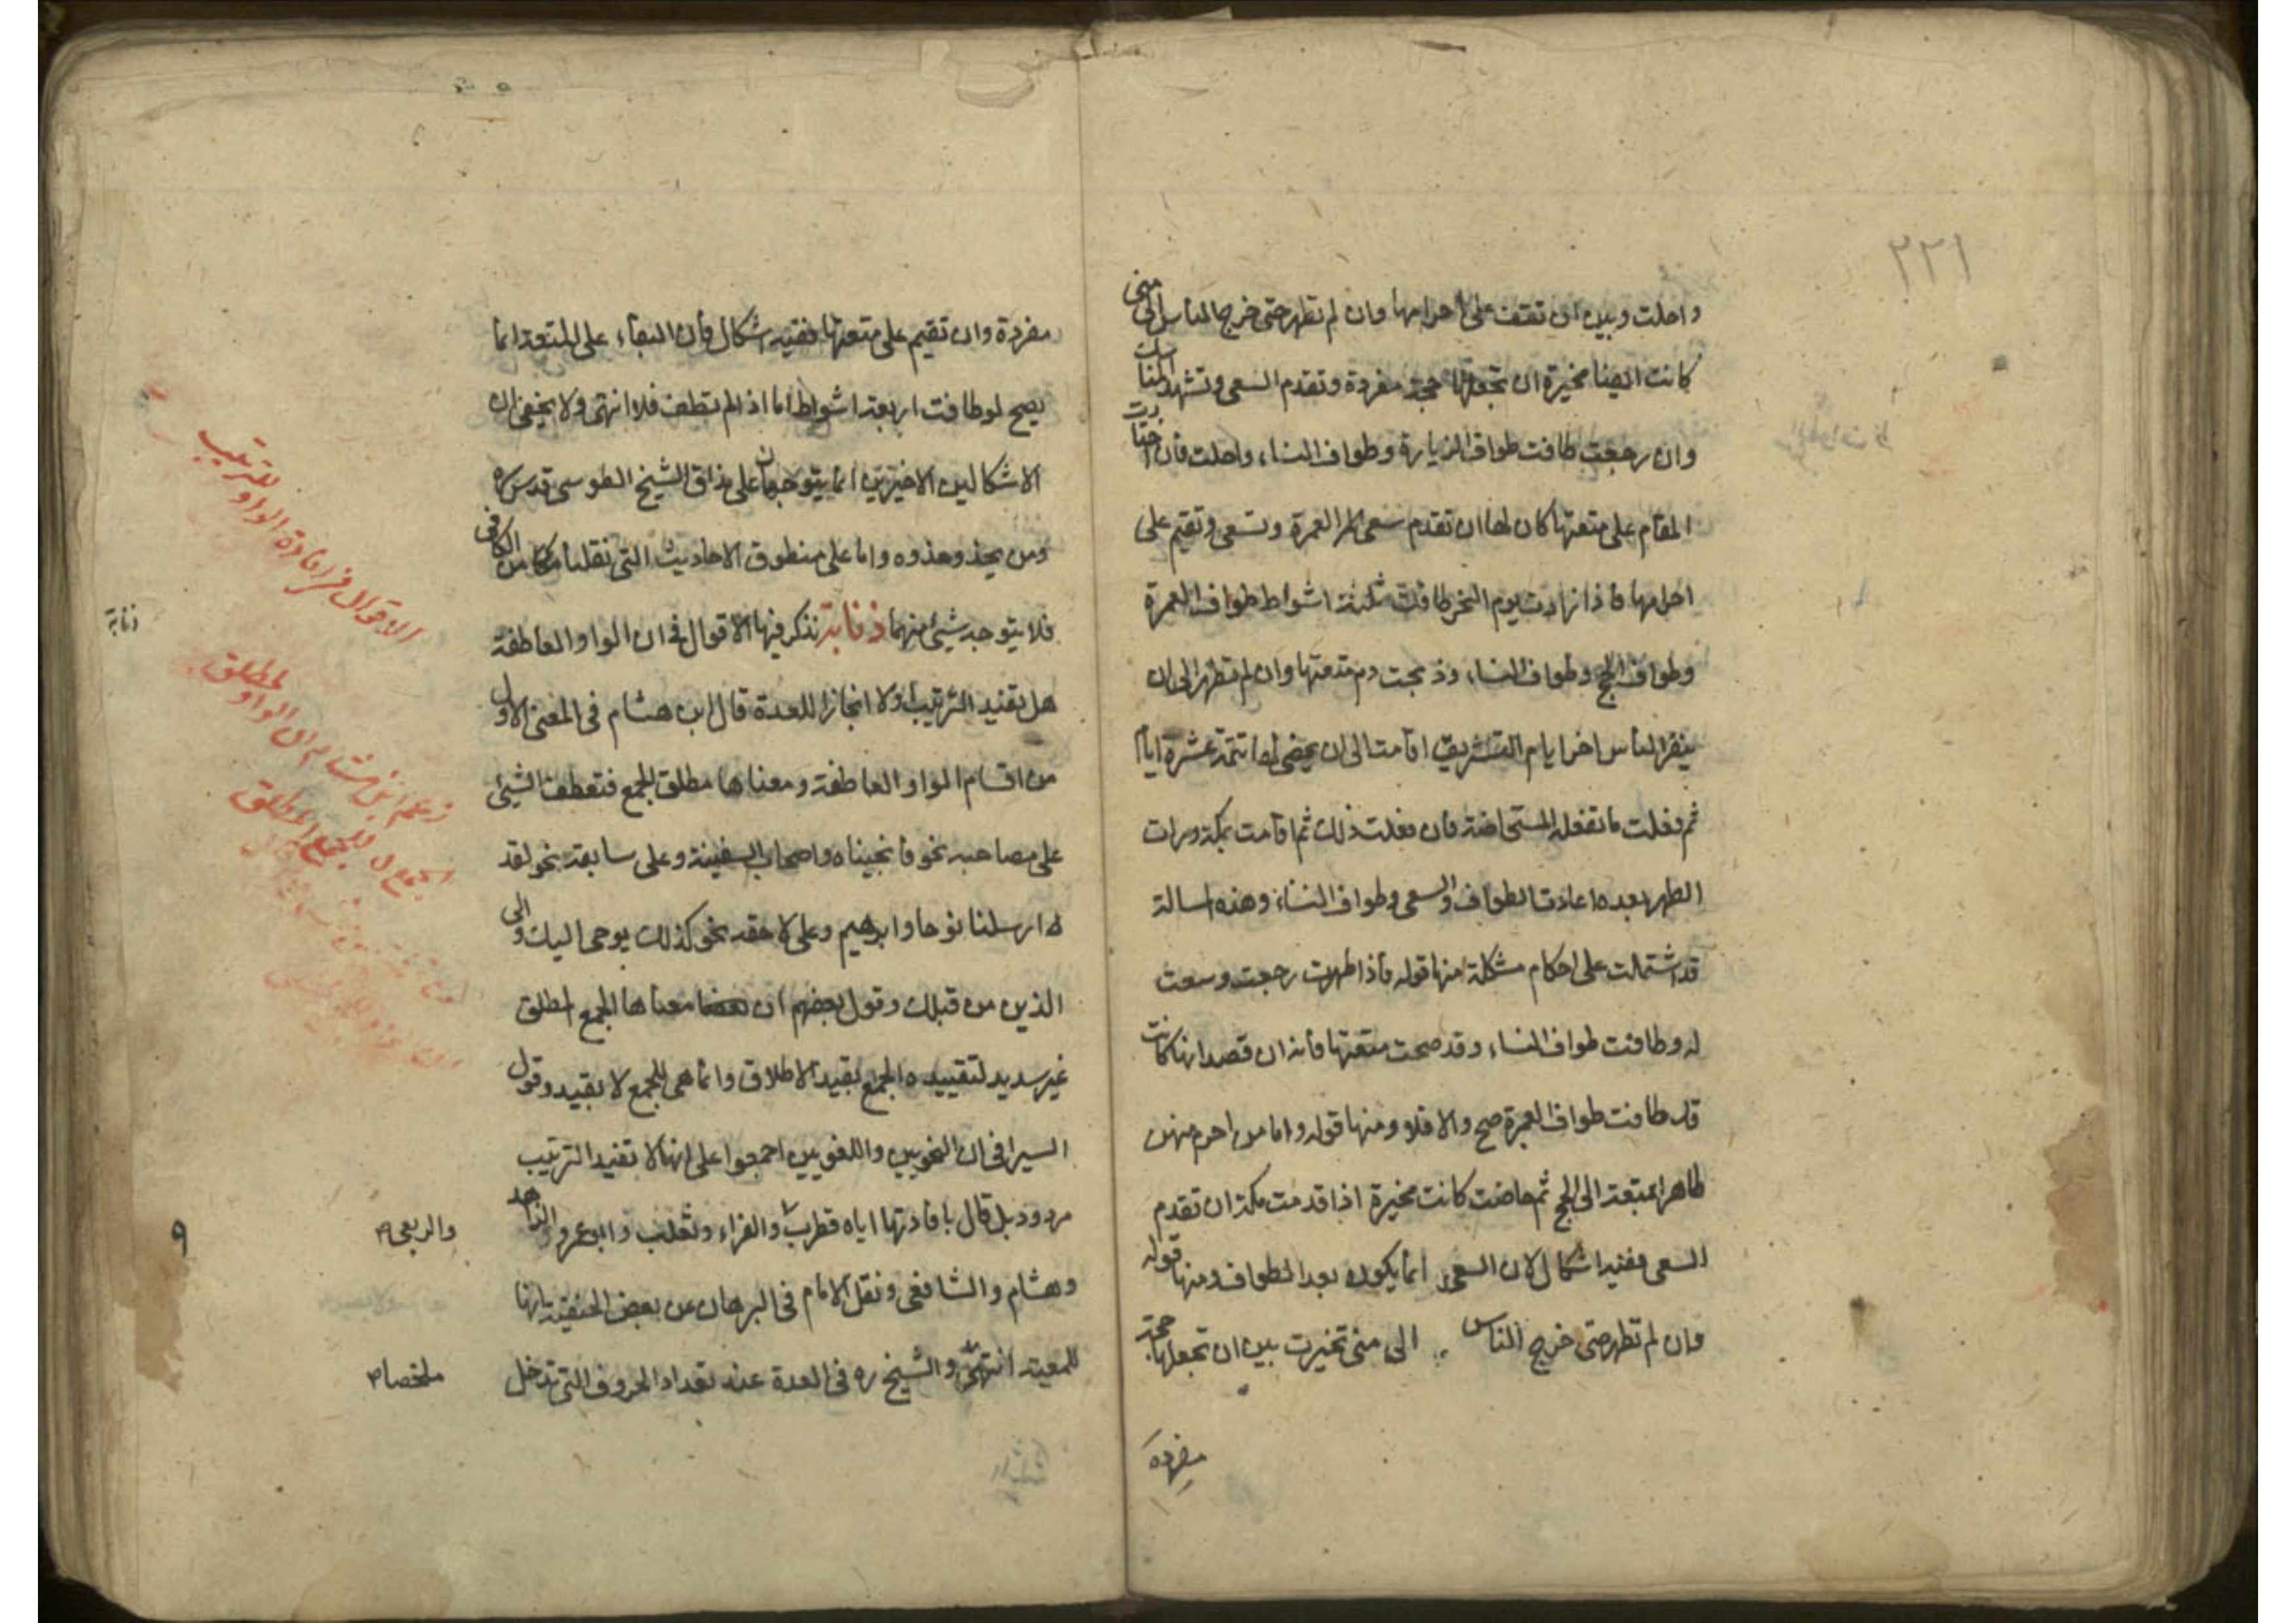 ٢٢١
واحلت وبين ان تقف على احرامها وان لم تطهر حتى خرج الناس الى منى
كانت ايضا مخيرة ان تجعلها حجة مفردة وتقدم السعى وتشهد المناسك
وان رجعت طافت طواف الزيارة وطواف النساء واحلت فان اختارت
المقام على متعتها كان لها ان تقدم سعى العمرة وتسعى وتقيم على
احرامها فاذا زارت يوم النحر طافت ثلثة اشواط طواف العمرة
وطواف الحج وطواف النساء وذبحت دم متعتها وان لم تطهر الى ان
ينفر الناس اخر ايام التشريق اقامت الى ان يمضى لها تتمة عشرة ايام
ثم فعلت ما تفعله المستحاضة فان فعلت ذلك ثم اقامت بمكة ورات
الطهر بعده اعادت الطواف والسعى وطواف النساء وهذه رسالة
قد اشتملت على احكام مشكلة منها قوله فاذا طهرت رجعت وسعت
له وطافت طواف النساء وقد صحت متعتها فانه ان قصد انها كانت
قد طافت طواف العمرة صح والا فلا ومنها قوله واما من احرم منهن
طاهرا بمتعة الى الحج ثم حاضت كانت مخيرة اذا قدمت مكة ان تقدم
السعى ففيه اشكال لان السعى انما يكون بعد الطواف ومنها قوله
وان لم تطهر حتى خرج الناس الى منى تخيرت بين ان تجعلها حجة
مفردة
مفردة وان تقيم على متعتها ففيه اشكال فان البقاء على المتعة انما
يصح لو طافت اربعة اشواط اما اذا لم تطف فلا انتهى ولا يخفى ان
الاشكالين الاخيرين انما يتوجهان على مذاق الشيخ الطوسى قدس سره
ومن يحذو حذوه واما على منطوق الاحاديث التى نقلناها من الكافى
فلا يتوجه شئ منهما ذنابة نذكر فيها الاقوال فى ان الواو العاطفة
هل تفيد الترتيب اولا انجازا للعدة قال ابن هشام فى المغنى الاول
من اقسام الواو العاطفة ومعناها مطلق الجمع فتعطف الشئ
على مصاحبه نحو فانجيناه واصحاب السفينة وعلى سابقه نحو لقد
ارسلنا نوحا وابرهيم وعلى لاحقه نحو كذلك يوحى اليك والى
الذين من قبلك وقول بعضهم ان معناها الجمع المطلق
غير سديد لتقييده الجمع بقيد الاطلاق وانما هى للجمع لا بقيد وقول
السيرافى ان النحويين واللغويين اجمعوا على انها لا تفيد الترتيب
مردود بل قال بافادتها اياه قطرب والفراء وثعلب وابو عمرو الزاهد
وهشام والشافعى ونقل الامام فى البرهان عن بعض الحنفية بانها
للمعية انتهى والشيخ ره فى العدة عند تعداد الحروف التى تدخل
الاقوال فى افادة الواو للترتيب
ذنابة
زعم ابن هشام ان الواو لمطلق
الجمع لا للجمع المطلق
والربعى
ملخصا
٩